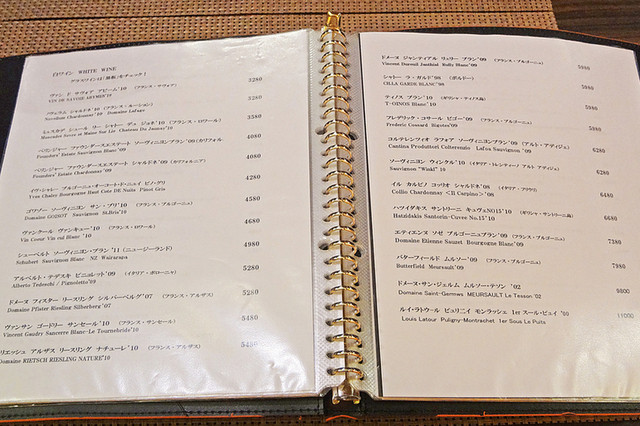 白ワイン WHITE WINE
グラスワインは「黒板」をチェック！
ヴァン ド サヴォア アビーム'10 (フランス・サヴォア) 3280
VIN DE SAVOIE ABYMES'10
ノヴェラム シャルドネ'10 (フランス・ルーション) 3280
Novellum Chardonnay'10 Domaine Lafage
3380
Muscadet Sevre et Maine Sur Lie Chateau Du Jaunay'10
ベリンジャー ファウンダースエステート ソーヴィニヨンブラン'09 (カリフォル 3580
Founders' Estate Sauvignon Blanc'09
ベリンジャー ファウンダースエステート シャルドネ'09 (カリフォルニア) 4080
Founders' Estate Chardonnay'09
イヴ・シャレー ブルゴーニュ・オーコート・ド・ニュイ ピノ・グリ 4280
Yves Chaley Bourgogne Haut Cote DE Nuits Pinot Gris
ゴワゾー ソーヴィニヨン サン・ブリ'10 (フランス・ブルゴーニュ) 4580
Domaine GOISOT Sauvignon St.Bris'10
ヴァンクール ヴァンキュー'10 (フランス・ロワール) 4680
Vin Coeur Vin cul Blanc '10
シューベルト ソーヴィニヨン・ブラン '11 (ニュージーランド) 4980
Schubert Sauvignon Blanc NZ Wairarapa
アルベルト・テデスキ ピニョレット'09 (イタリア・ボローニャ) 5280
Alberto Tedeschi / Pignoletto'09
ドメーヌ フィスター リースリング シルバーベルグ'07 (フランス・アルザス) 5280
Domaine Pfister Riesling Silberberg'07
ヴァンサン ゴードリー サンセール'10 (フランス・サンセール) 5480
Vincent Gaudry Sancerre Blanc-Le Tournebride'10
リエッシュ アルザス リースリング ナチューレ'10 (フランス・アルザス) 5480
Domaine RIETSCH RIESLING NATURE'10
ドメーヌ ジャンティアル リュリー ブラン'09 (フランス・ブルゴーニュ) 5980
Vincent Dureuil Janthial Rully Blanc'09
シャトー ラ・ガルド'98 (ボルドー) 5980
CILLA GARDE BLANC'98
ティノス ブラン'10 (ギリシャ・ティノス島) 5980
T-OINOS BLANC'10
フレデリック コサール ビゴー'09 (フランス・ブルゴーニュ) 5980
Frederic Cossard Bigotes'09
コルテレンツィオ ラフォア ソーヴィニヨンブラン'09 (アルト・アディジェ) 5980
Cantina Produttori Colterenzio Lafoa Sauvignon '09
ソーヴィニヨン ヴィンクル'10 (イタリア・トレンティーノ アルト アディジェ) 6280
Sauvignon "Winkl" 10
イル カルピノ コッリオ シャルドネ'98 (イタリア・フリウリ) 6480
Collio Chardonnay <Il Carpino>'98
ハツィダキス サントリーニ キュヴェNO15'10 (ギリシャ・サントリーニ島) 6680
Hatzidakis Santorin-Cuvee No.15'10
エティエンヌ ソゼ ブルゴーニュブラン'09 (フランス・ブルゴーニュ) 7380
Domaine Etienne Sauzet Bourgogne Blanc'09
バターフィールド ムルソー'09 (フランス・ブルゴーニュ) 7980
Butterfield Meursault'09
ドメーヌ・サン・ジェルム ムルソー・テソン '02 9800
Domaine Saint-Germes MEURSAULT Le Tesson '02
ルイ・ラトゥール ピュリニイ モンラッシェ 1er スール・ピュイ '00 11000
Louis Latour Puligny-Montrachet 1er Sous Le Puits